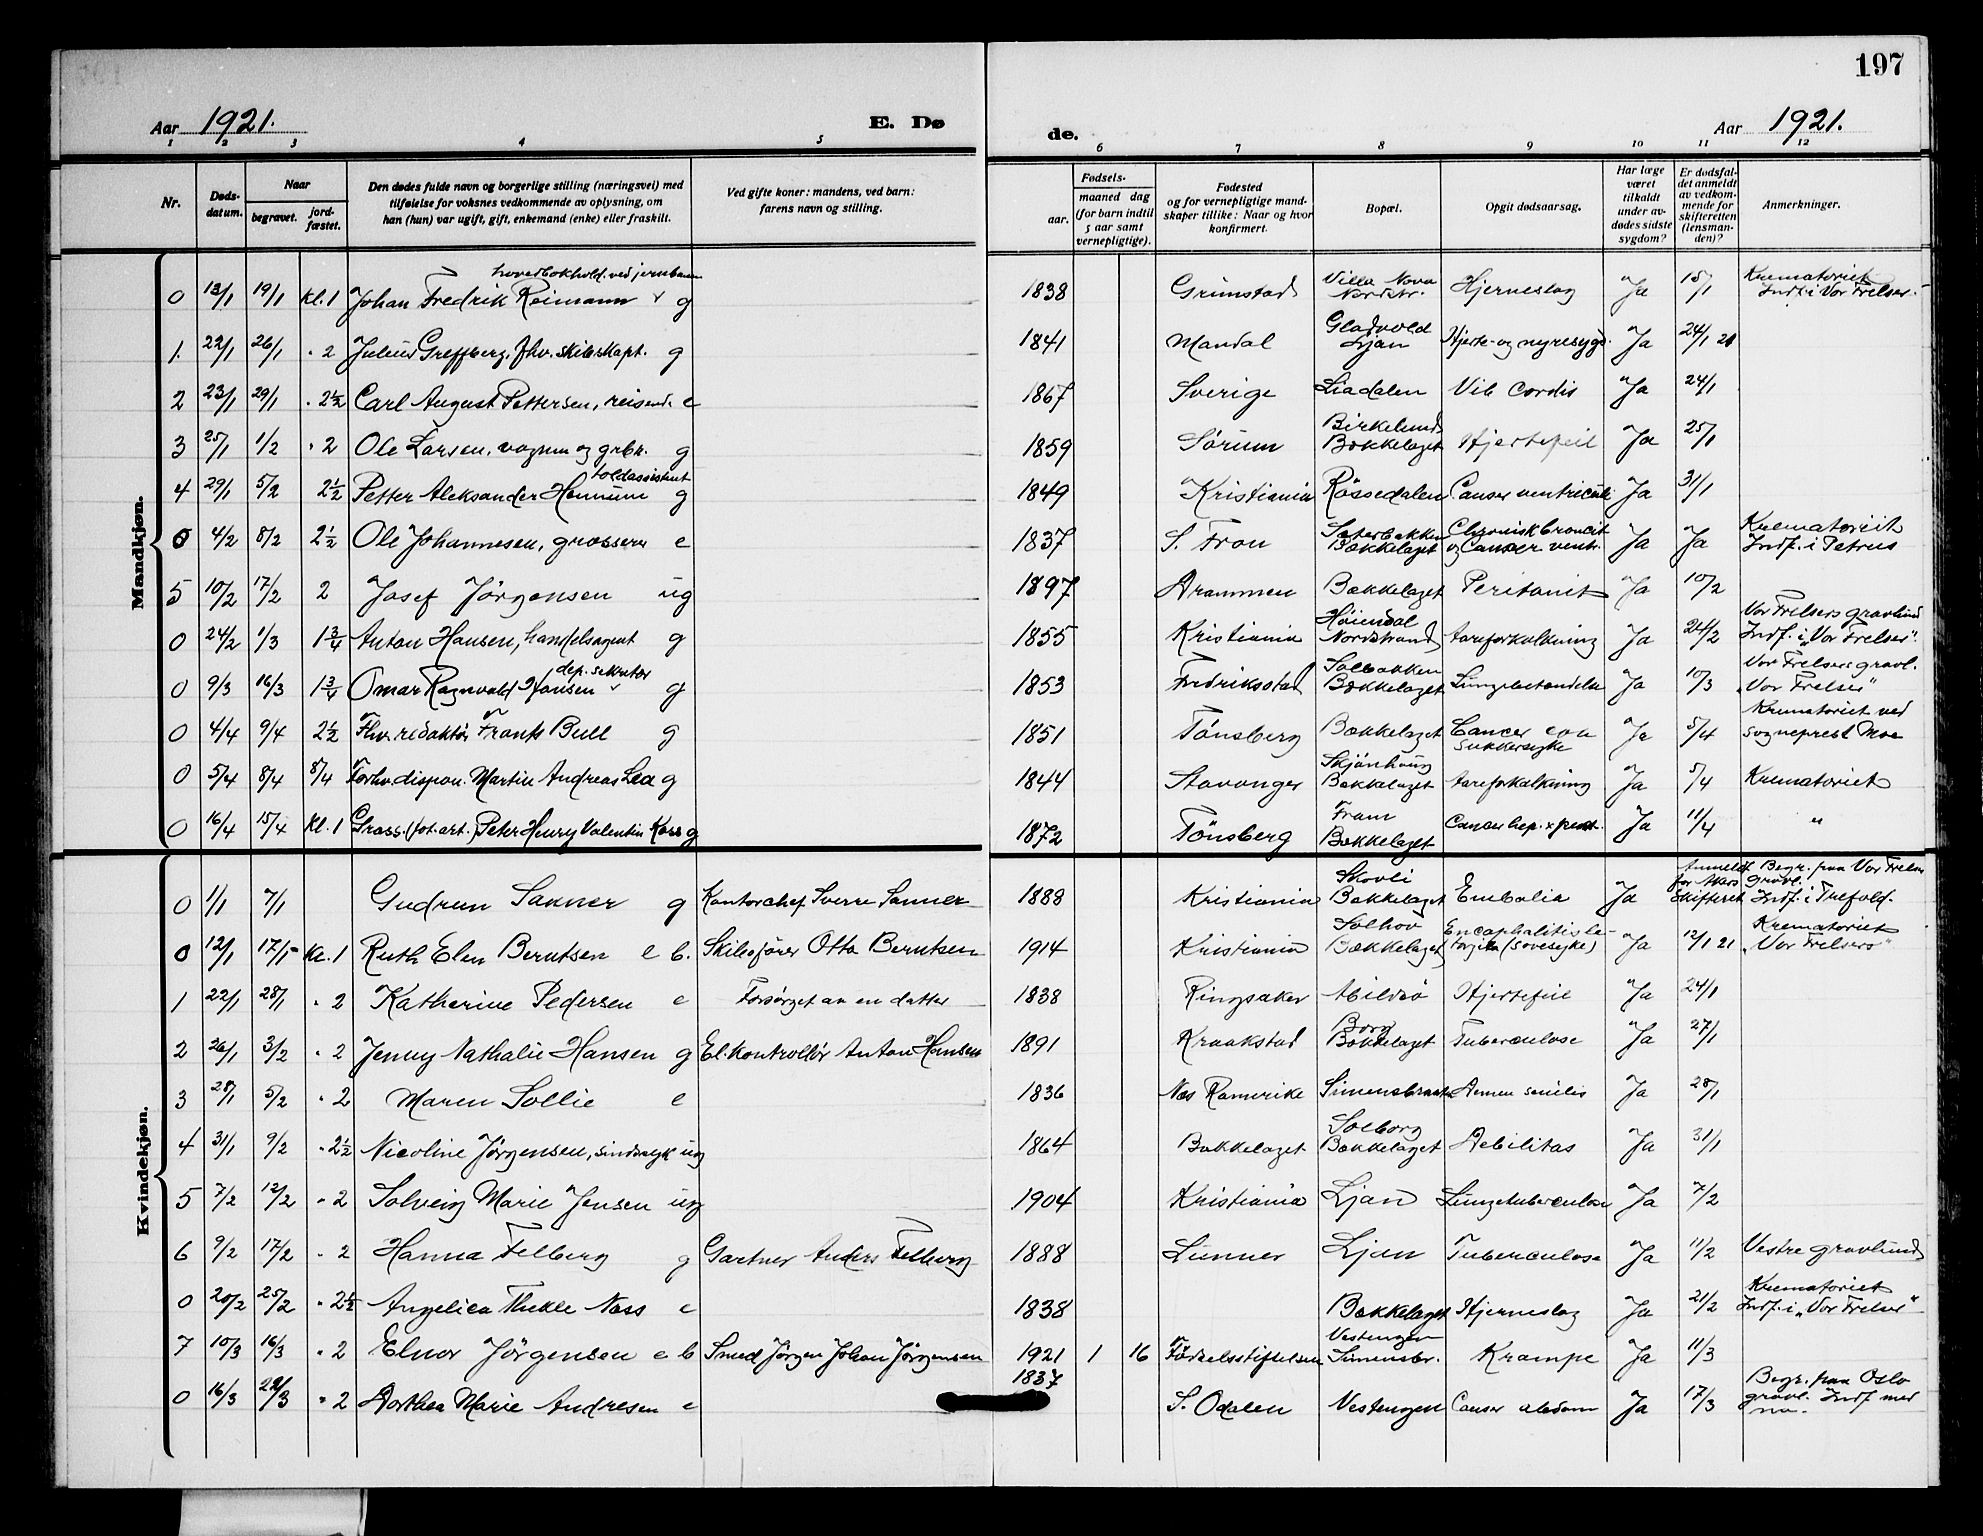 197
Aar 1921. E. Dø de. Aar 1921.
1 2 3 4 5 6 7 8 9 10 11 12
Nr. Døds-datum. Naar begravet. jord-fæstet. Den dødes fulde navn og borgerlige stilling (næringsvei) med tilføielse for voksnes vedkommende av oplysning, om han (hun) var ugift, gift, enkemand (enke) eller fraskilt. Ved gifte koner: mandens, ved barn: farens navn og stilling. Fødsels- aar. maaned dag (for barn indtil 5 aar samt vernepligtige). Fødested og for vernepligtige mand-skaper tillike: Naar og hvor konfirmert. Bopæl. Opgit dødsaarsag. Har læge været tilkaldt under av-dødes sidste sygdom? Er dødsfal-det anmeldt av vedkom-mende for skifteretten (lensman-den)? Anmerkninger.
Mandkjøn.
0 13/1 19/1 Kl. 1 Johan Fredrik Reimann hovedbokhold. ved jernbanen g 1838 Grimstad Villa Nova Nordstr. Hjerneslag Ja 15/1 Krematoriet Indf. i Vor Frelser.
1. 22/1 26/1 " 2 Julius Greffberg, fhv. skibskapt. g 1841 Mandal Gladvold Ljan Hjerte- og nyresygd. Ja 24/1 21
2 23/1 29/1 " 2½ Carl August Pettersen, reisend. e 1867 Sverige Liadalen Vib Cordis Ja 24/1
3 25/1 1/2 " 2 Ole Larsen, vognm og grbr. g 1859 Sørum Birkelund Bækkelaget Hjertefeil Ja 25/1
4 29/1 5/2 2½ Petter Aleksander Hennum toldassistent g 1849 Kristiania Røssedalen Cancer ventriculi Ja 31/1
0 4/2 8/2 2½ Ole Johannesen, grosserer e 1837 S. Fron Sæterbakken Bækkelaget Chronisk broncit og Cancer ventr. Ja Ja Krematoriet Indf. i Petrus
5 10/2 17/2 2 Josef Jørgensen ug 1897 Drammen Bækkelaget Peritonit Ja 10/2
0 24/2 1/3 1¾ Anton Hansen, handelsagent g 1855 Kristiania Høiendal Nordstrand Aareforkalkning Ja 24/2 Vor Frelsers gravlund Indf. i „Vor Frelser".
0 9/3 16/3 1¾ Omar Ragnvald Hansen dep. sekretær g 1853 Fredriksstad Solbakken Bækkelaget Lungebetændelse Ja 10/3 Vor Frelsers gravl. „Vor Frelser"
0 4/4 9/4 2½ Fhv. redaktør Frants Bull g 1851 Tønsberg Bækkelaget Cancer coa sukkersyke Ja 5/4 Krematoriet ved sogneprest Moe
0 5/4 8/4 8/4 Forhv. dispon. Martin Andreas Lea g 1844 Stavanger Skjønhaug Bækkelaget Aareforkalkning Ja 5/4 Krematoriet
0 16/4 15/4 Kl. 1 Gross. (fot. art.) Peter Henry Valentin Kass g 1872 Tönsberg Fram Bækkelaget Cancer hep. Ja 11/4 "
Kvindekjøn.
0 1/1 7/1 Gudrun Sanner g Kontorchef Sverre Sanner 1888 Kristiania Skovli Bækkelaget Embolia Ja Anmeldt for Akers skifteret Begr. paa Vor Frelser gravl. Indf. i Trefold.
0 12/1 17/1 Kl. 1 Ruth Elen Berntsen e b. Skibsfører Otto Berntsen 1914 Kristiania Solhov Bækkelaget Encephalitis le- targica (sovesyke) Ja 12/1 21 Krematoriet „Vor Frelsers"
1 22/1 28/1 " 2 Katherine Pedersen e Forsørget av en datter 1838 Ringsaker Mildsø Hjertefeil Ja 24/1
2 26/1 3/2 " 2 Jenny Nathalie Hansen g El. kontrollør Anton Hansen 1891 Kraakstad Borg Bækkelaget Tuberculose Ja 27/1
3 28/1 5/2 " 2 Maren Sollie e 1836 Næs Romerike Simensbraaten Demen senilis Ja 28/1
4 31/1 9/2 " 2½ Nicoline Jørgensen, sindssyk ug 1864 Bækkelaget Solborg Bækkelaget Debilitas Ja 31/1
5 7/2 12/2 " 2 Solveig Marie Jensen ug 1904 Kristiania Ljan Lungetuberculose Ja 7/2
6 9/2 17/2 " 2 Hanna Felberg g Gartner Anders Felberg 1888 Lunner Ljan Tuberculose Ja 11/2 Vestre gravlund
0 20/2 25/2 " 2½ Angelica Thekle Næss e 1838 Bækkelaget Hjerneslag Ja 21/2 Krematoriet Indf. i „Vor Frelser"
7 10/3 16/3 " 2 Elnor Jörgensen e b Smed Jörgen Johan Jörgensen 1921 1 16 Födselsstiftelsen Vestengen Simensbr. Krampe Ja 11/3
0 16/3 22/3 " 2 Dorthea Marie Andresen e 1837 S. Odalen Vestengen Cancer abdom Ja 17/3 Begr. paa Oslo gravl. Indf med no.